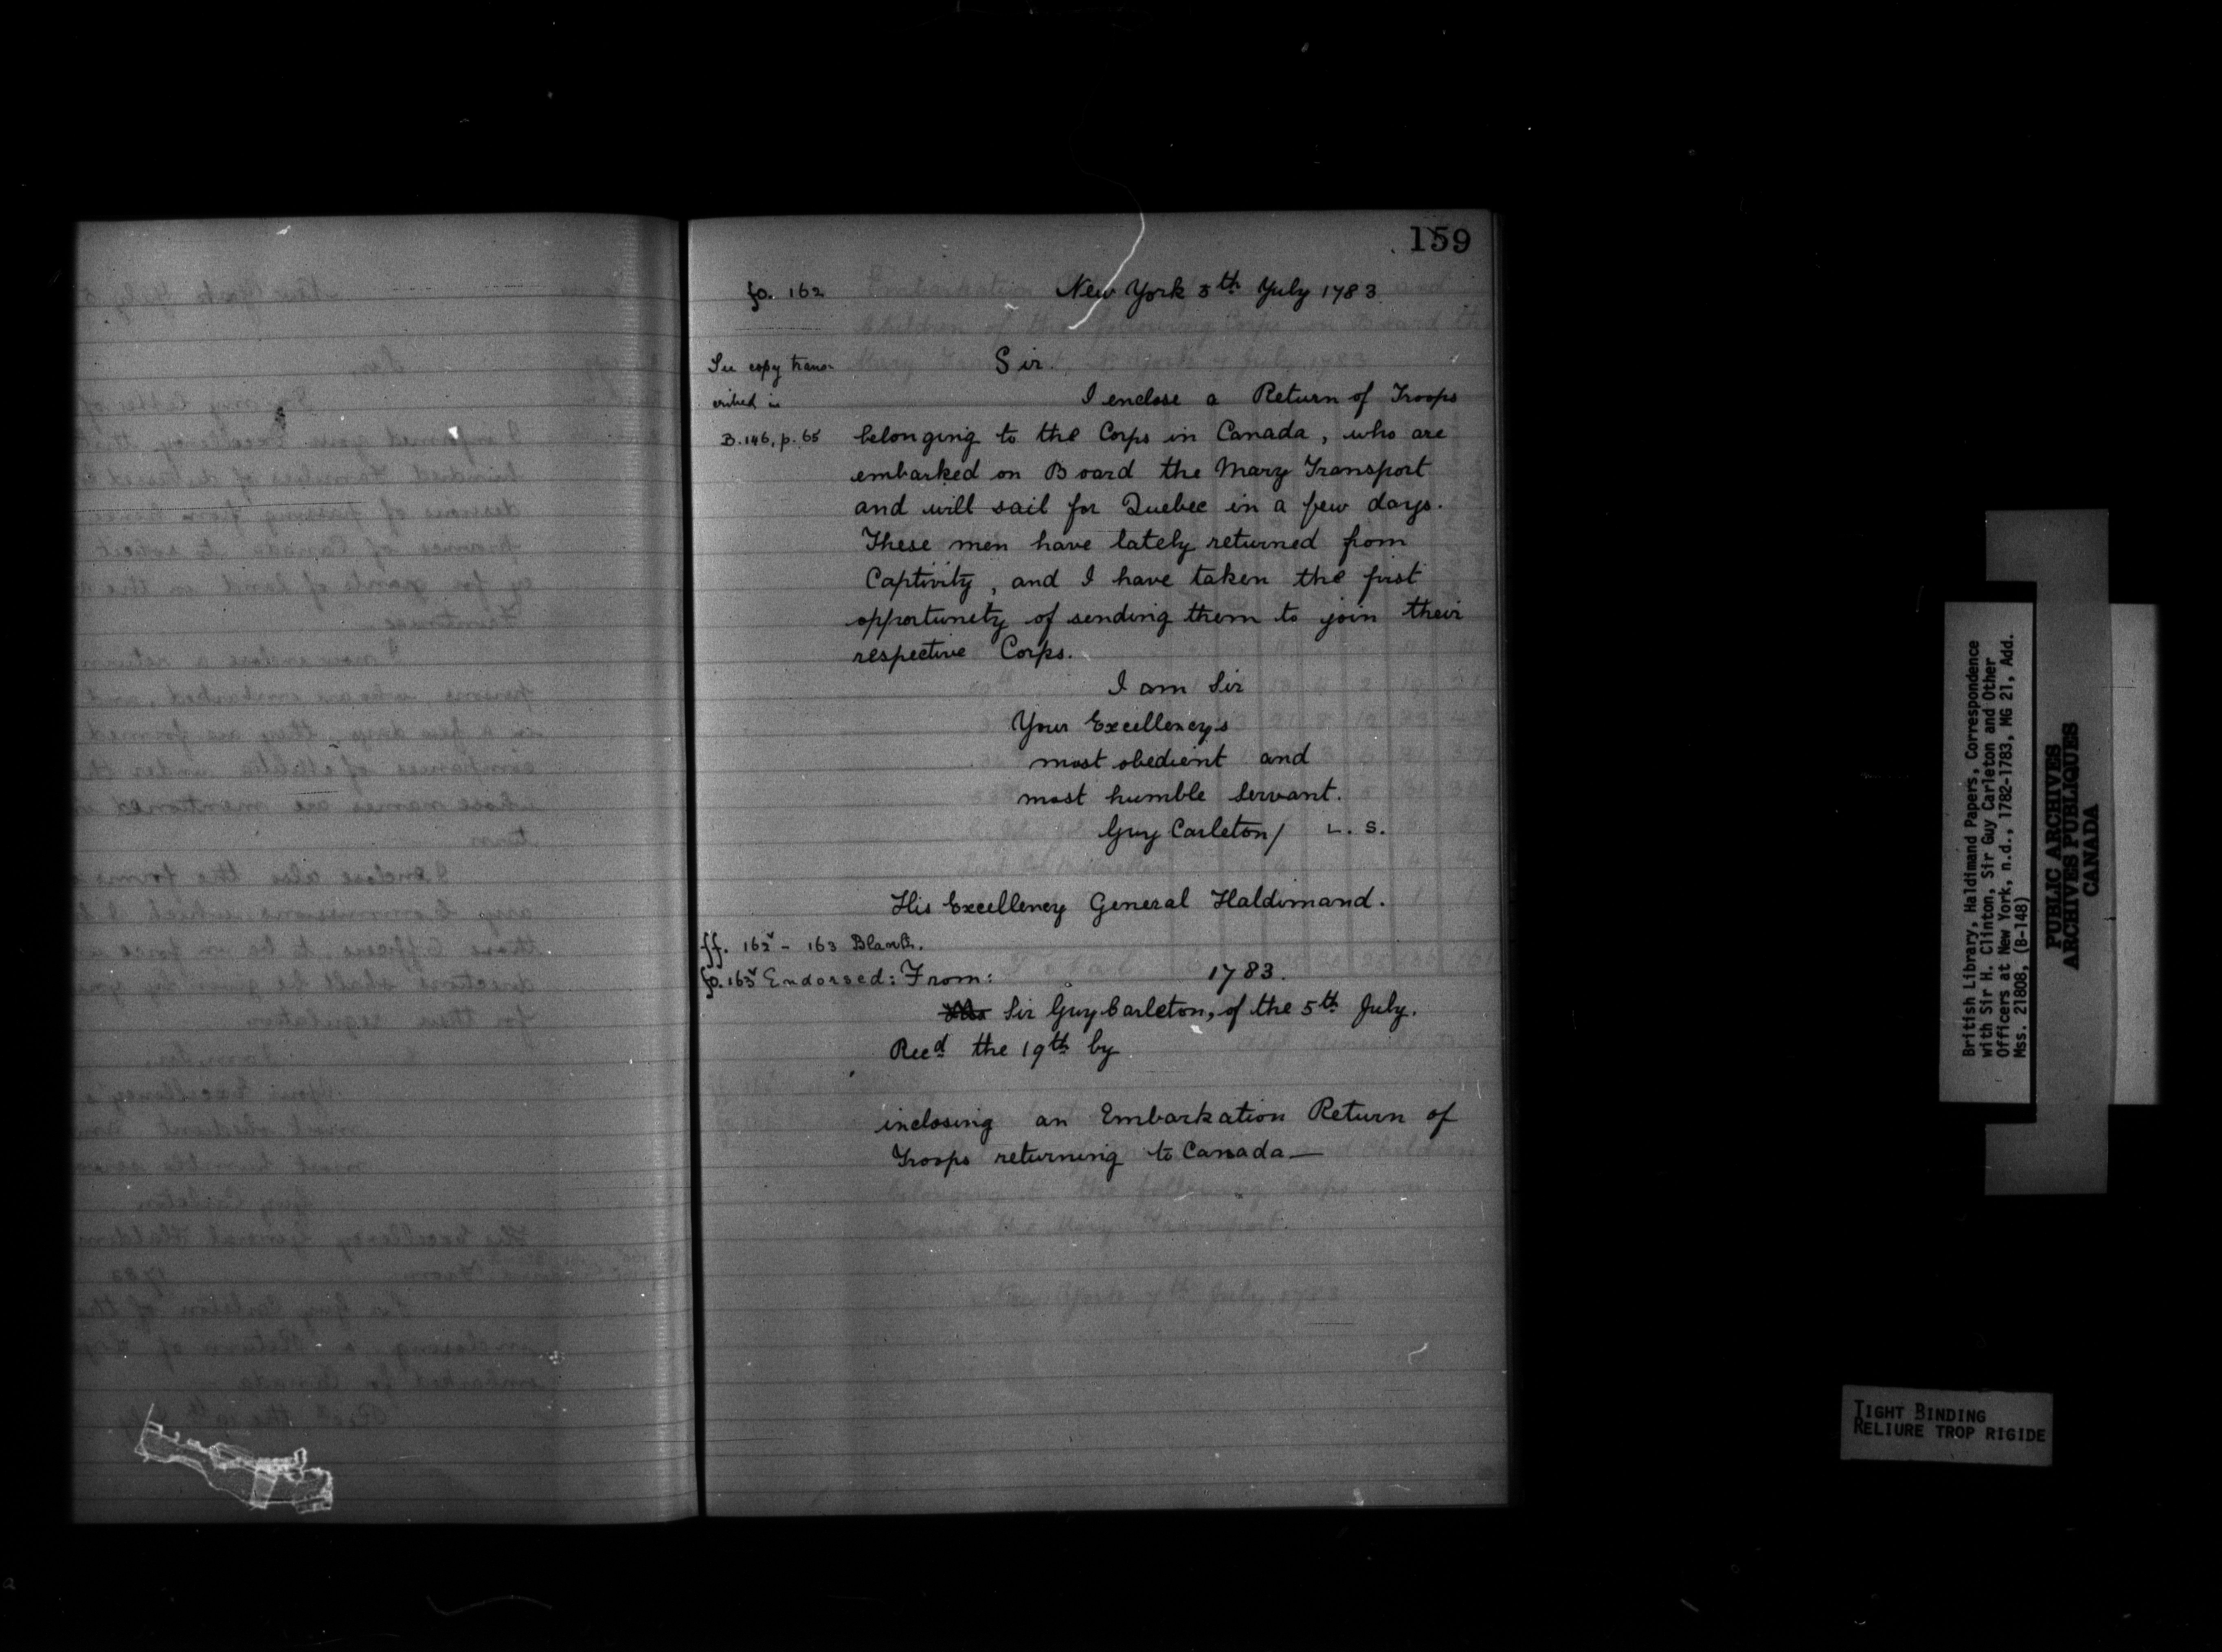 159
fo. 162
New York 5th July 1783
See copy trans-
cribed in
B.146, p. 65
Sir.
I enclose a Return of Troops
belonging to the Corps in Canada, who are
embarked on Board the Mary Transport
and will sail for Quebec in a few days.
These men have lately returned from
Captivity, and I have taken the first
opportunety of sending them to join their
respective Corps.
I am Sir
Your Excellency's
most obedient and
most humble Servant.
Guy Carleton / L. S.
His Excellency General Haldimand.
ff. 162v - 163 Blank.
fo. 163v Endorsed: From: 1783.
Sir Guy Carleton, of the 5th July.
Recd the 19th by
inclosing an Embarkation Return of
Troops returning to Canada—
British Library, Haldimand Papers, Correspondence
with Sir H. Clinton, Sir Guy Carleton and Other
Officers at New York, n.d., 1782-1783, MG 21, Add.
Mss. 21808, (B-148)
PUBLIC ARCHIVES
ARCHIVES PUBLIQUES
CANADA
TIGHT BINDING
RELIURE TROP RIGIDE